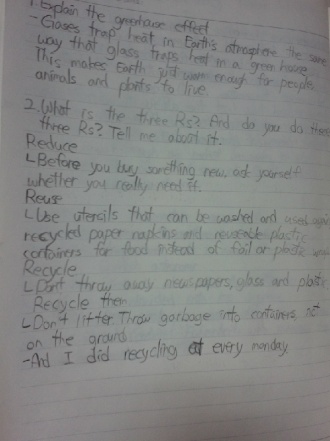 1. Explain the greenhouse effect
- Gases trap heat in Earth's atmosphere the same
way that glass traps heat in a green house.
This makes Earth just warm enough for people
animals and plants to live.
2. What is the three Rs? And do you do these
three Rs? Tell me about it.
Reduce
└Before you buy something new, ask yourself
whether you really need it.
Reuse
└Use utensils that can be washed and used again
recycled paper napkins and reuseable plastic
containers for food instead of foil or plastic wrap
Recycle
└Don't throw away newspapers, glass and plastic
Recycle them
└Don't litter. Throw garbage into containers, not
on the ground
-And I did recycling every monday.